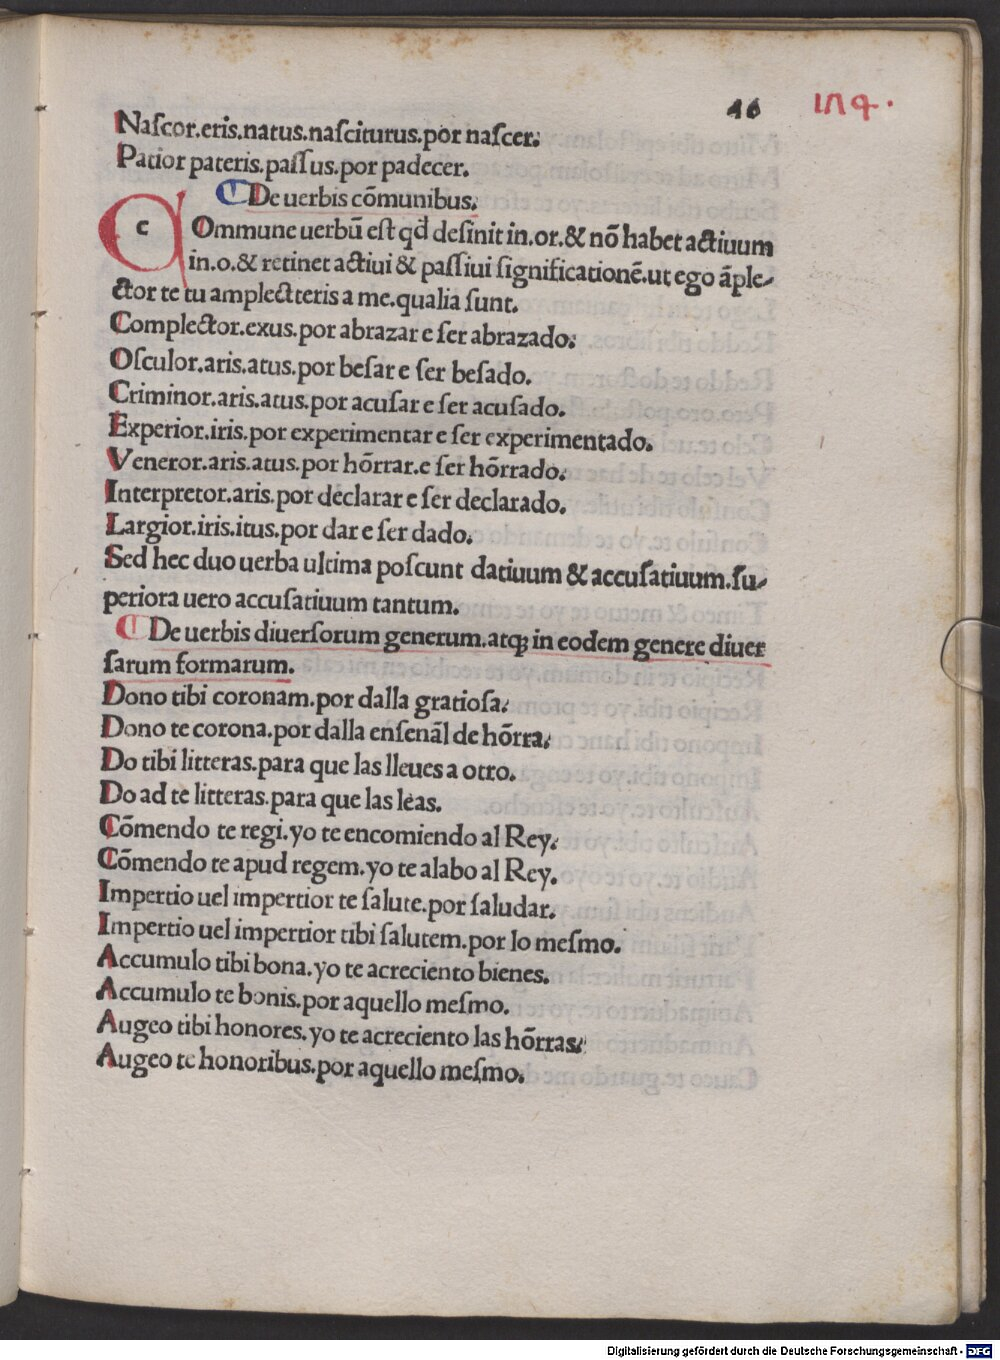 46 104.
Naſcor.eris.natus.naſciturus.por naſcer.
Patior pateris.paſſus.por padecer.
De uerbis cōmunibus.
c Ommune uerbū eſt qđ deſinit in.or.& nō habet actiuum
in.o.& retinet actiui & paſſiui ſignificationē.ut ego āple⸗
ctor te tu amplecteris a me.qualia ſunt.
Complector.exus.por abrazar e ſer abrazado.
Oſculor.aris.atus.por beſar e ſer beſado.
Criminor.aris.atus.por acuſar e ſer acuſado.
Experior.iris.por experimentar e ſer experimentado.
Veneror.aris.atus.por hōrrar.e ſer hōrrado.
Interpretor.aris.por declarar e ſer declarado.
Largior.iris.itus.por dar e ſer dado.
Sed hec duo uerba ultima poſcunt datiuum & accuſatiuum.ſu⸗
periora uero accuſatiuum tantum.
De uerbis diuerſorum generum.atqꝫ in eodem genere diuer
ſarum formarum.
Dono tibi coronam.por dalla gratioſa.
Dono te corona.por dalla enſenāl de hōrra.
Do tibi litteras.para que las lleues a otro.
Do ad te litteras.para que las leas.
Cōmendo te regi.yo te encomiendo al Rey.
Cōmendo te apud regem.yo te alabo al Rey.
Impertio uel impertior te ſalute.por ſaludar.
Impertio uel impertior tibi ſalutem.por lo meſmo.
Accumulo tibi bona.yo te acreciento bienes.
Accumulo te bonis.por aquello meſmo.
Augeo tibi honores.yo te acreciento las hōrras.
Augeo te honoribus.por aquello meſmo.
Digitalisierung gefördert durch die Deutsche Forschungsgemeinschaft - DFG